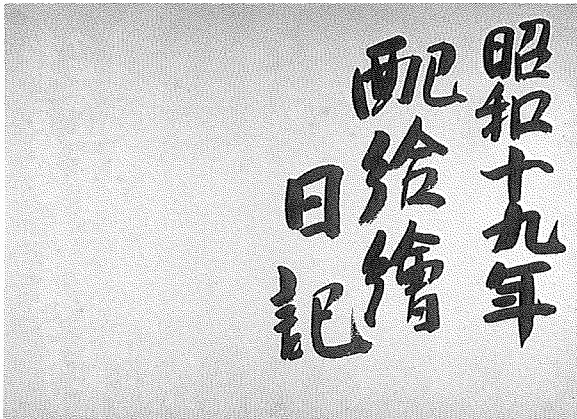 昭和十九年
配給繪
日記